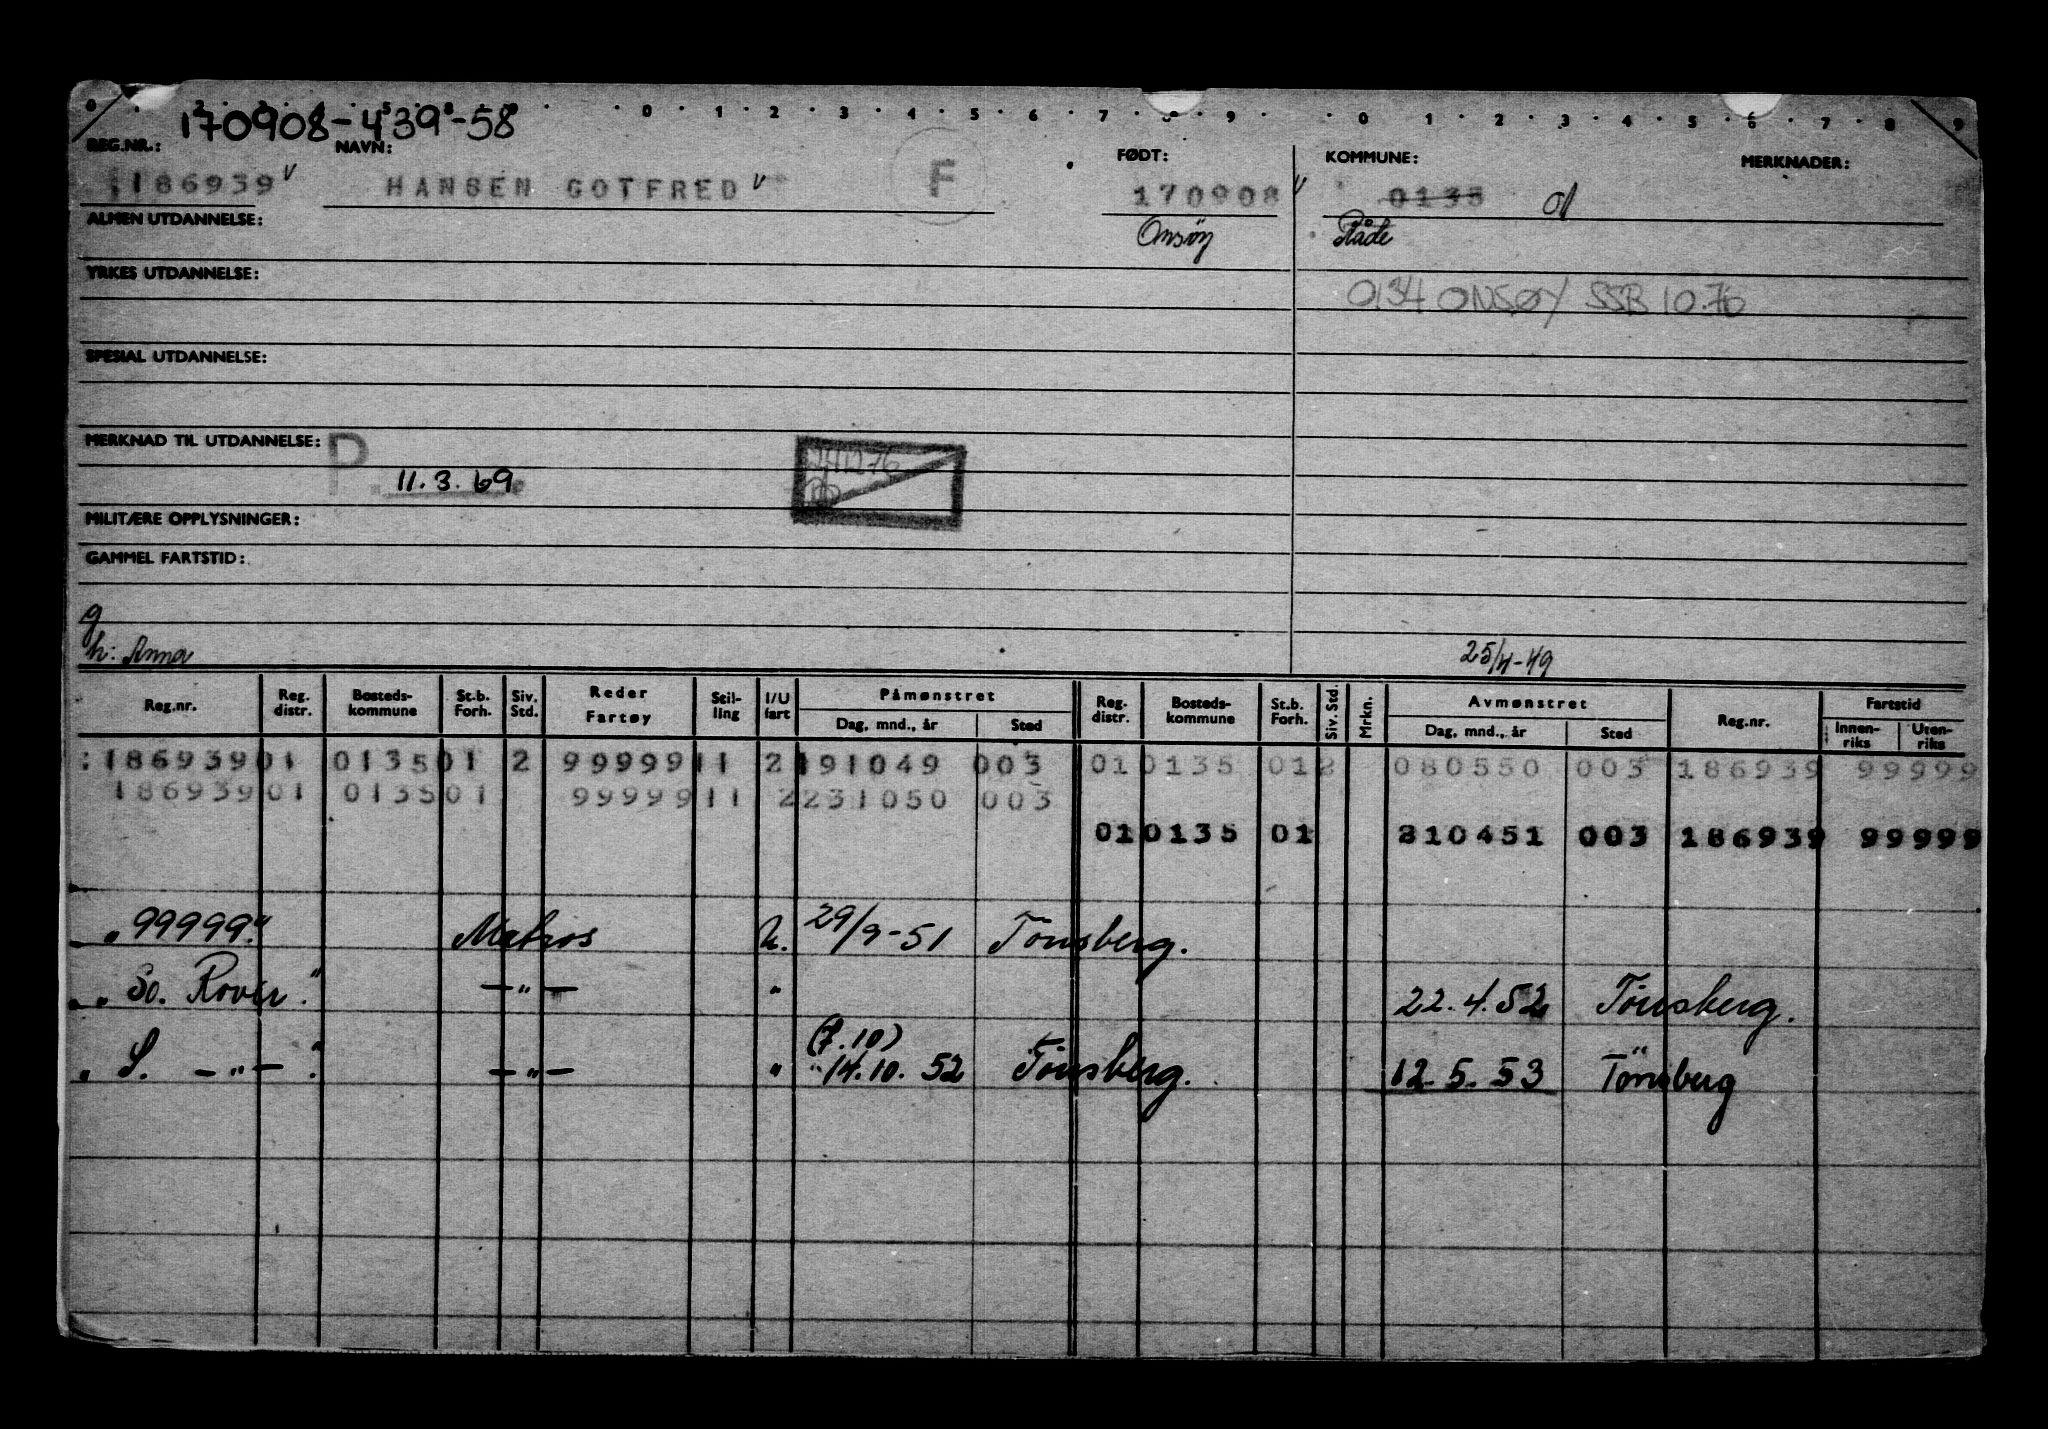 0 1 2 3 4 5 6 7 8 9 0 1 2 3 4 5 6 7 8 9
170908-439-58
REG.NR.: NAVN: FØDT: KOMMUNE: MERKNADER:
186939 v HANSEN GOTFRED v F 170908 v 0135
ALMEN UTDANNELSE: Onsöy Råde
YRKES UTDANNELSE:
0134 ONSØY SSB 10.76
SPESIAL UTDANNELSE:
MERKNAD TIL UTDANNELSE: P.
11.3.69
MILITÆRE OPPLYSNINGER:
GAMMEL FARTSTID:
g
h: Anna 25/4-49
Reg.nr. Reg. distr. Bosteds-kommune St.b. Forh. Siv. Std. Reder Fartøy Stil-ling I/U fart Påmønstret Dag, mnd., år Sted Reg. distr. Bosteds-kommune St.b. Forh. Siv. Std. Mrkn. Avmønstret Dag, mnd., år Sted Reg.nr. Fartstid Innen-riks Uten-riks
:186939 01 0135 01 2 99999 11 2 191049 003 01 0135 01 2 080550 003 186939 99999
186939 01 0135 01 99999 11 2 231050 003
01 0135 01 210451 003 186939 99999
„99999." Matros u. 29/9-51 Tönsberg.
„So. Rover." -"- " 22.4.52 Tönsberg.
(7.10)
„S. -"-." -"- " 14.10.52 Tönsberg. 12.5.53 Tönsberg